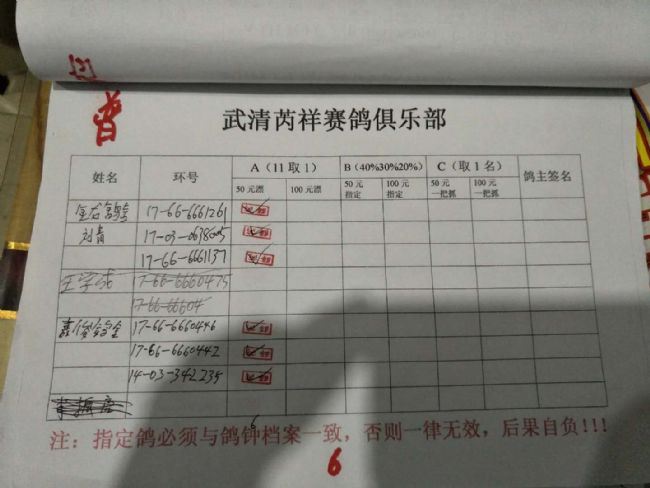 普
武清芮祥赛鸽俱乐部
姓名 环号 A（11取1） B（40%30%20%） C（取1名） 鸽主签名
50元漂 100元漂 50元指定 100元指定 50元一把抓 100元一把抓
金龙鸽舍 17-66-6661261
刘青 17-03-0638005
17-66-6661137
王学成 17-66-6660475
17-66-66604
17-66-6660446
17-66-6660442
14-03-342235
6
注：指定鸽必须与鸽钟档案一致，否则一律无效，后果自负!!!
6